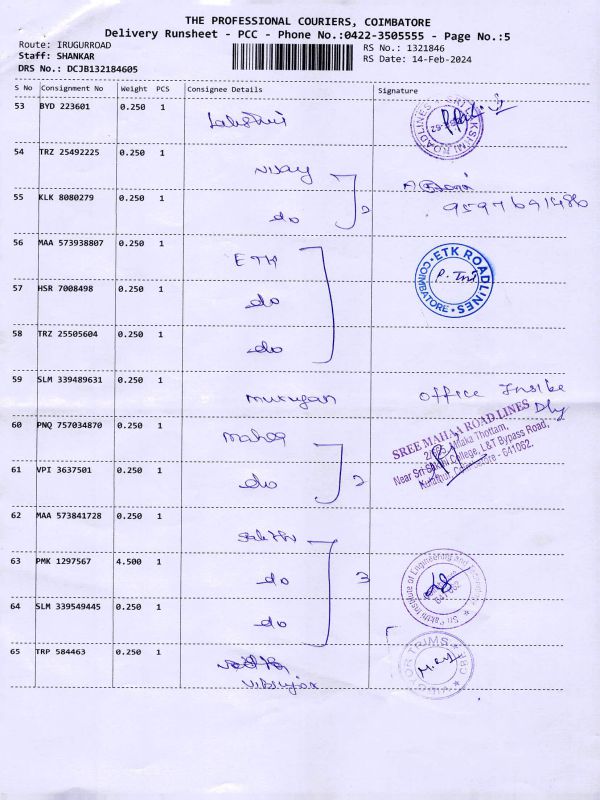 THE PROFESSIONAL COURIERS, COIMBATORE
Delivery Runsheet - PCC - Phone No.:0422-3505555 - Page No.:5
Route: IRUGURROAD
RS No.: 1321846
Staff: SHANKAR
RS Date: 14-Feb-2024
DRS No.: DCJB132184605
S No Consignment No Weight PCS Consignee Details Signature
53 BYD 223601 0.250 1
Lakshmi
54 TRZ 25492225 0.250 1
vijay
55 KLK 8080279 0.250 1
do 2
9597691486
56 MAA 573938807 0.250 1
ETK
ETK ROADLINES
COIMBATORE
57 HSR 7008498 0.250 1
do
58 TRZ 25505604 0.250 1
do
59 SLM 339489631 0.250 1
murugan
office Inside
Dly
60 PNQ 757034870 0.250 1
SREE MAHAA ROAD LINES
Thottam,
College, L&T Bypass Road,
Coimbatore - 641062.
61 VPI 3637501 0.250 1
do 2
62 MAA 573841728 0.250 1
63 PMK 1297567 4.500 1
do 3
64 SLM 339549445 0.250 1
do
65 TRP 584463 0.250 1